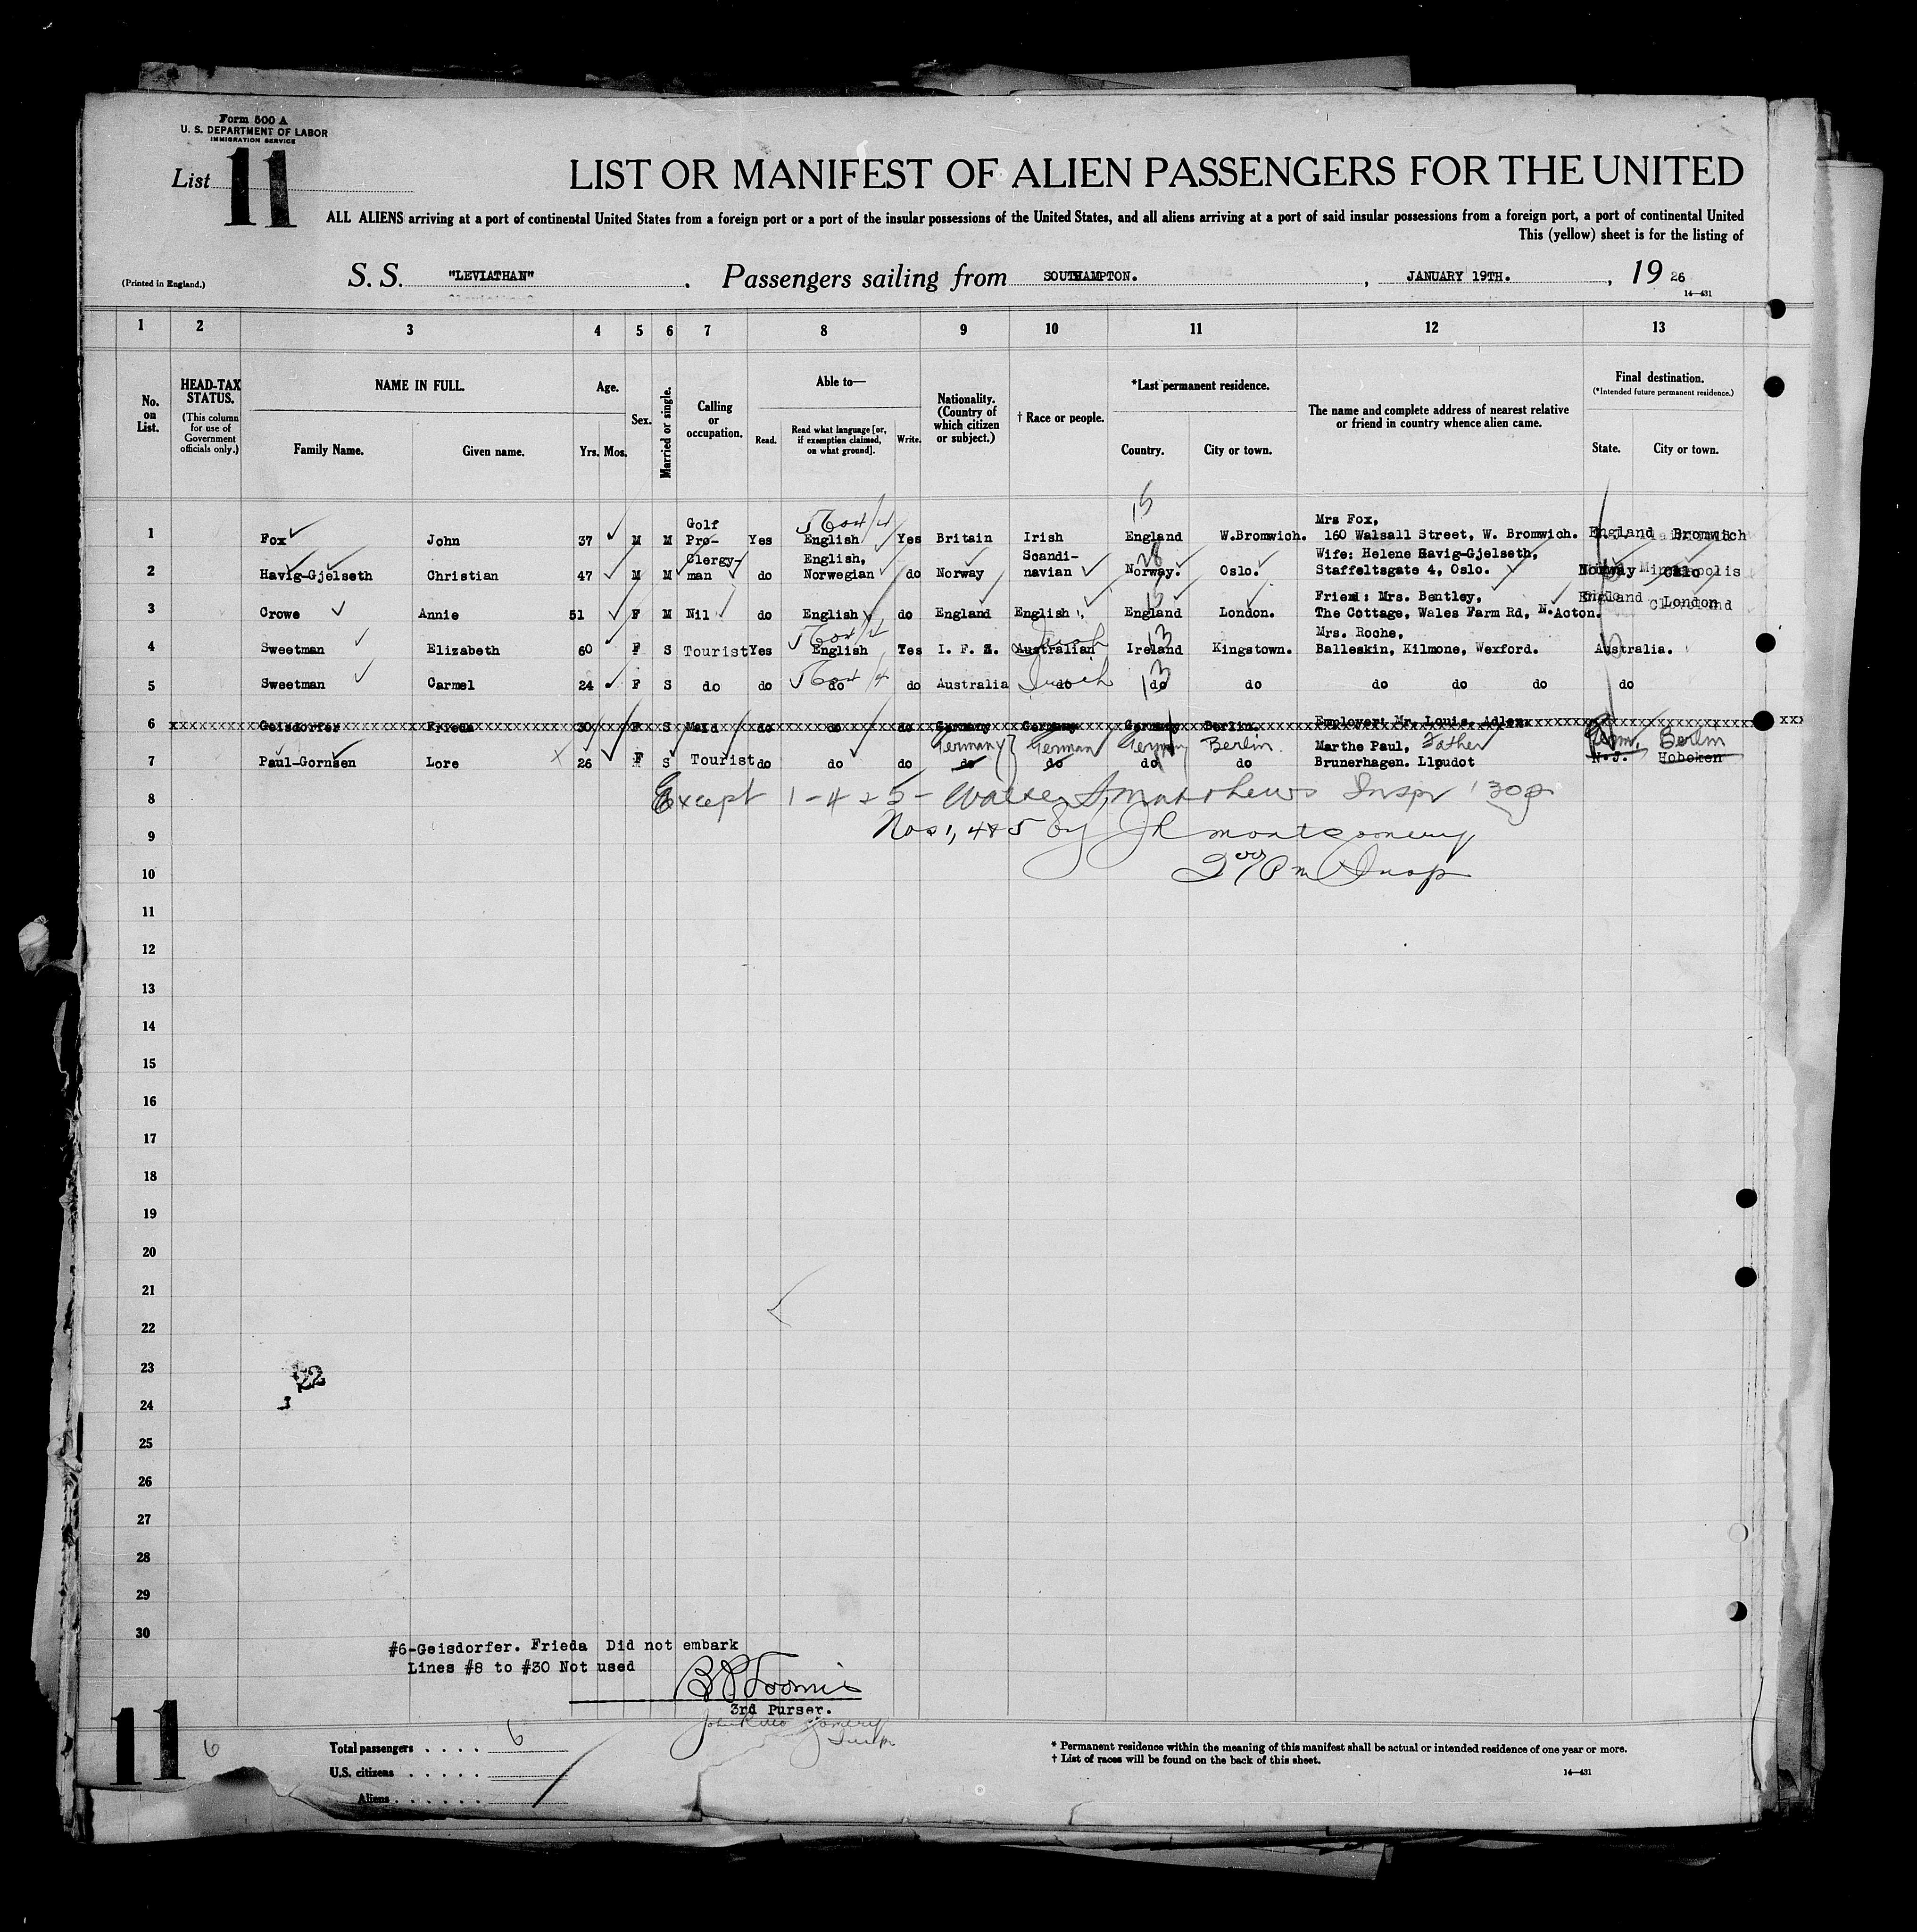 Form 500 A
U. S. DEPARTMENT OF LABOR
IMMIGRATION SERVICE
List 11
LIST OR MANIFEST OF ALIEN PASSENGERS FOR THE UNITED
ALL ALIENS arriving at a port of continental United States from a foreign port or a port of the insular possessions of the United States, and all aliens arriving at a port of said insular possessions from a foreign port, a port of continental United
This (yellow) sheet is for the listing of
(Printed in England.)
S. S. "LEVIATHAN" . Passengers sailing from SOUTHAMPTON. , JANUARY 19TH. , 19 26
14—431
1 2 3 4 5 6 7 8 9 10 11 12 13
No. on List.
HEAD-TAX STATUS.
(This column for use of Government officials only.)
NAME IN FULL.
Family Name. Given name.
Age.
Yrs. Mos.
Sex.
Married or single.
Calling or occupation.
Able to—
Read. Read what language [or, if exemption claimed, on what ground]. Write.
Nationality. (Country of which citizen or subject.)
† Race or people.
*Last permanent residence.
Country. City or town.
The name and complete address of nearest relative or friend in country whence alien came.
Final destination.
(*Intended future permanent residence.)
State. City or town.
15
1 Fox John 37 M M Golf Pro- Yes English Yes Britain Irish England W.Bromwich. Mrs Fox, 160 Walsall Street, W. Bromwich. England Bromwich
2 Havig-Gjelseth Christian 47 M M Clergy- man do English, Norwegian do Norway Scandi- navian Norway. Oslo. Wife: Helene Havig-Gjelseth, Staffeltsgate 4, Oslo. Norway Oslo
3 Crowe Annie 51 F M Nil do English do England English England London. Friend: Mrs. Bentley, The Cottage, Wales Farm Rd, N. Acton. England London
4 Sweetman Elizabeth 60 F S Tourist Yes English Yes I. F. S. Australian Irish Ireland Kingstown. Mrs. Roche, Balleskin, Kilmone, Wexford. Australia.
5 Sweetman Carmel 24 F S do do do do Australia do Irish do do do do do do
6 Geisdorfer Frieda 30 F S Maid do do do Germany Germany Germany Berlin. Employer: Mr. Louis. Adler
Germany German Germany Berlin.
7 Paul-Gornsen Lore 26 F S Tourist do do do do do do do Marthe Paul, Father Brunerhagen. Llpudot Germ. Berlin N.J. Hoboken
8 Except 1 - 4 + 5 - Walter A Matthews Inspr 130p
9 Nos 1, 4 & 5 by J R Montgomery
10 2 00/Pm Insp
11
12
13
14
15
16
17
18
19
20
21
22
23
24
25
26
27
28
29
30
#6-Geisdorfer. Frieda Did not embark
Lines #8 to #30 Not used
3rd Purser.
Insp
11
6
Total passengers . . . . 6
U.S. citizens . . . . .
Aliens . . . . . .
* Permanent residence within the meaning of this manifest shall be actual or intended residence of one year or more.
† List of races will be found on the back of this sheet.
14—431